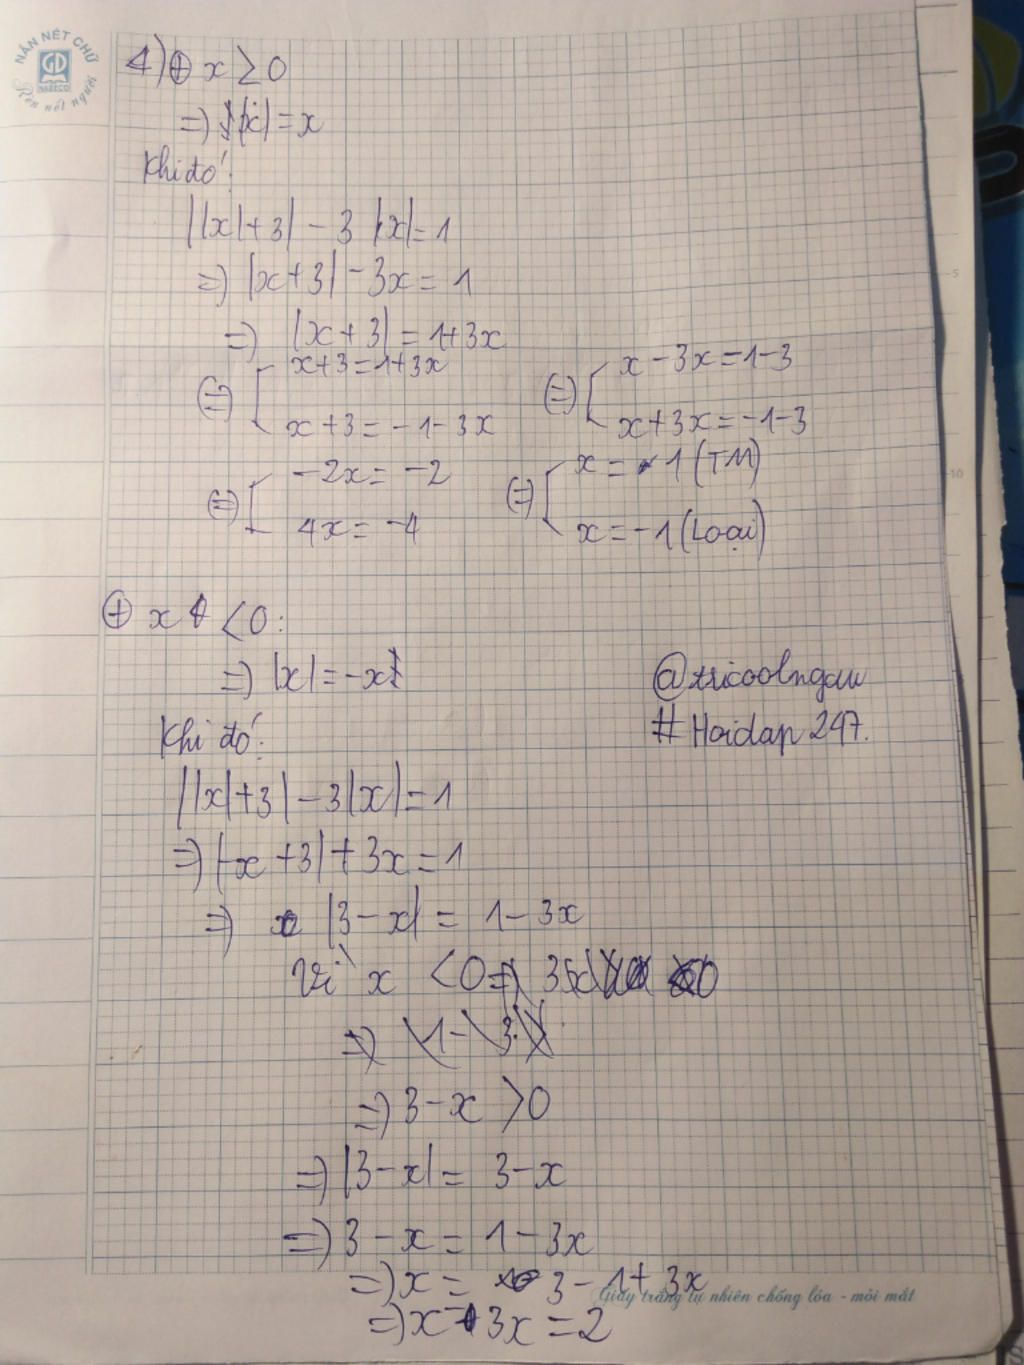 NẮN NÉT CHỮ
GD
NABECO
Rèn nết người
4) ⊕ x ≥ 0
=> |x| = x
Khi đó:
||x|+3| - 3|x| = 1
=> |x+3| - 3x = 1
=> |x+3| = 1+3x
(=) [ x+3 = 1+3x (=) [ x - 3x = 1-3
x+3 = -1-3x x+3x = -1-3
(=) [ -2x = -2 (=) [ x = 1 (TM)
4x = -4 x = -1 (Loại)
⊕ x < 0:
=> |x| = -x
Khi đó:
||x|+3| - 3|x| = 1
=> |-x+3| + 3x = 1
=> |3-x| = 1-3x
Vì x < 0
=> 3-x > 0
=> |3-x| = 3-x
=> 3-x = 1-3x
=> x = 3-1+3x
=> x 3x = 2
@tricoolngau
#Hoidap247.
Giấy trắng tự nhiên chống lóa - mỏi mắt
5
10